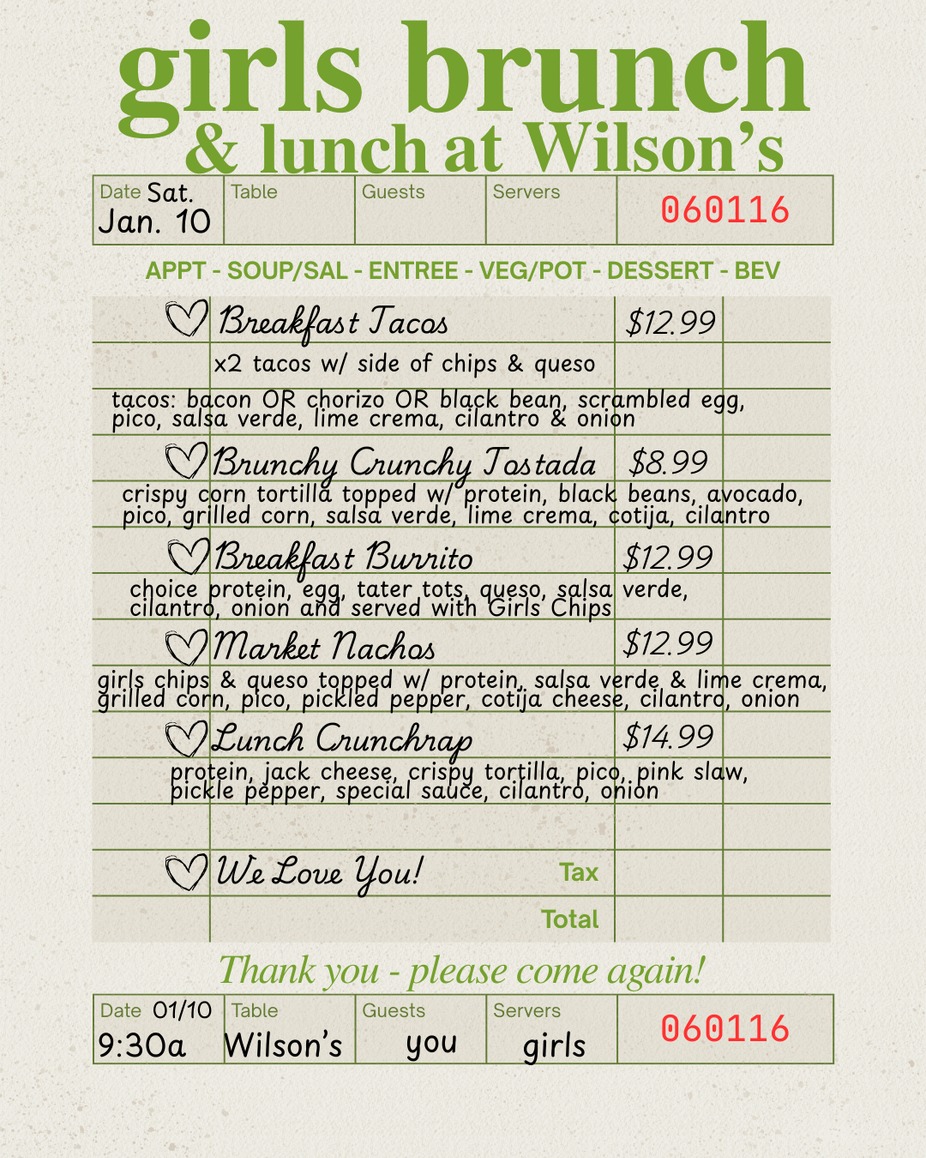 girls brunch
& lunch at Wilson's
Date Sat. Table Guests Servers 060116
Jan. 10
APPT - SOUP/SAL - ENTREE - VEG/POT - DESSERT - BEV
Breakfast Tacos $12.99
x2 tacos w/ side of chips & queso
tacos: bacon OR chorizo OR black bean, scrambled egg,
pico, salsa verde, lime crema, cilantro & onion
Brunchy Crunchy Tostada $8.99
crispy corn tortilla topped w/ protein, black beans, avocado,
pico, grilled corn, salsa verde, lime crema, cotija, cilantro
Breakfast Burrito $12.99
choice protein, egg, tater tots, queso, salsa verde,
cilantro, onion and served with Girls Chips
Market Nachos $12.99
girls chips & queso topped w/ protein, salsa verde & lime crema,
grilled corn, pico, pickled pepper, cotija cheese, cilantro, onion
Lunch Crunchrap $14.99
protein, jack cheese, crispy tortilla, pico, pink slaw,
pickle pepper, special sauce, cilantro, onion
We Love You! Tax
Total
Thank you - please come again!
Date 01/10 Table Guests Servers 060116
9:30a Wilson's you girls